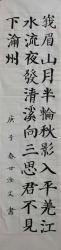 峩眉山月半輪秋影入平羌江
水流夜發清溪向三思君不見
下渝州
庚子春